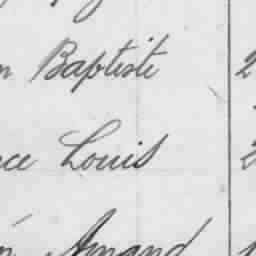 n Baptiste 2
ce Louis 2
n Amand